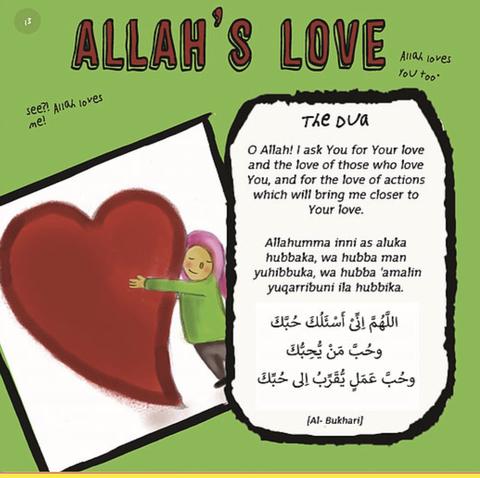 13
ALLAH'S LOVE
Allah loves
YOU too.
see?! Allah loves
me!
The DUA
O Allah! I ask You for Your love
and the love of those who love
You, and for the love of actions
which will bring me closer to
Your love.
Allahumma inni as aluka
hubbaka, wa hubba man
yuhibbuka, wa hubba 'amalin
yuqarribuni ila hubbika.
اللَّهُمَّ اِنِّىْ أَسْئَلُكَ حُبَّكَ
وحُبَّ مَنْ يُّحِبُّكَ
وحُبَّ عَمَلٍ يُّقَرِّبُ اِلى حُبِّكَ
[Al- Bukhari]